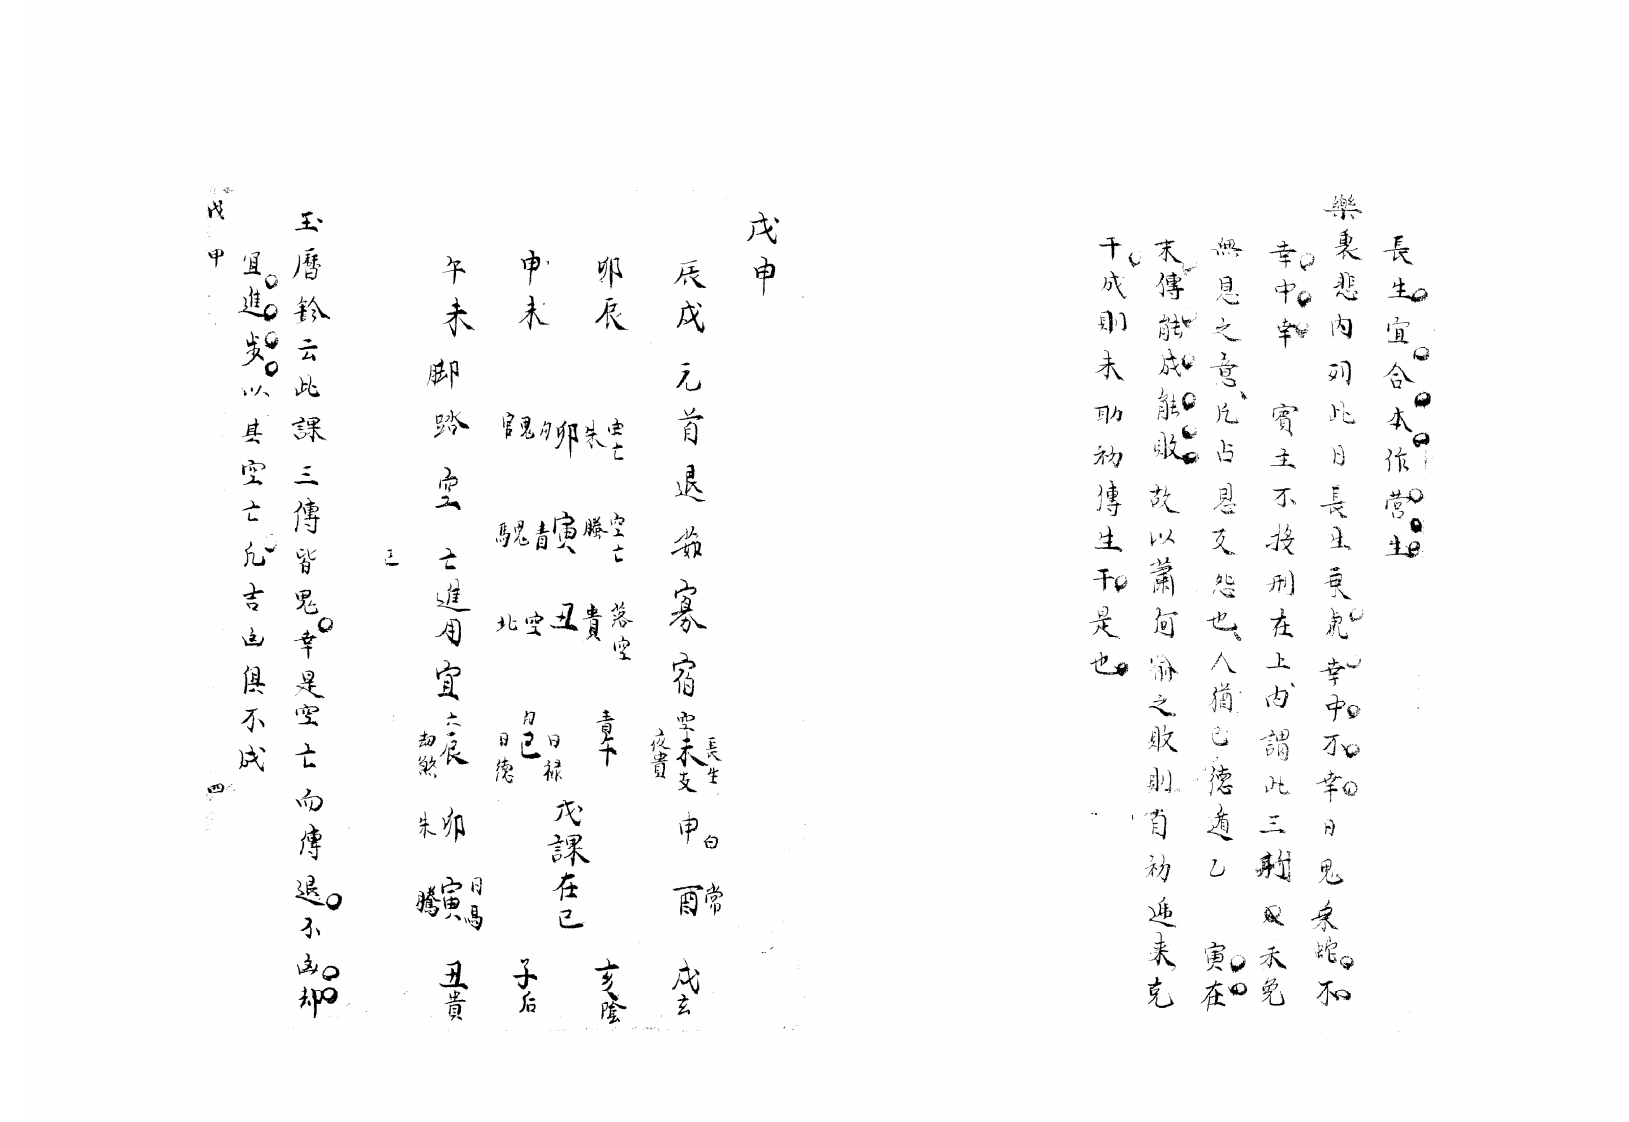 長生宜合本作營生
樂裏悲內列此日長生乘虎幸中不幸日鬼乘蛇不
幸中幸　賓主不投刑在上內謂此三刑未免
無恩之意凡占恩反怨也人猶己德遁乙　寅在
末傳能成能敗故以蕭何喻之敗則自初遞來克
干成則末助初傳生干是也
戊申
辰戌　元首　退茹　寡宿　空未支　長生　夜貴　申白　酉常　戌玄
卯辰　朱　空亡　螣　空亡　貴　落空　青午　亥陰
申未　官鬼　卯　馬鬼青寅　空丑　巳　日祿　日德　戊課在巳　子后
午未　腳踏空亡進用宜　六辰　劫煞　卯朱　寅螣　日馬　丑貴
玉曆鈐云此課三傳皆鬼幸是空亡而傳退不凶却
宜進步以其空亡凡吉凶俱不成
戊申　四